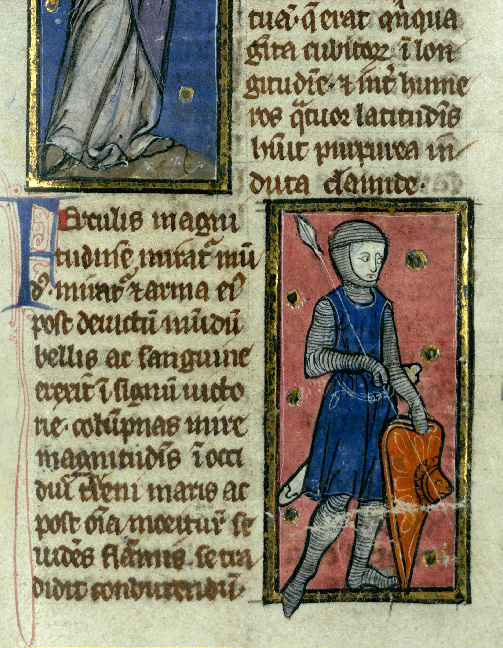 tuā· q̄ erat q̄nqua
gīta cubitoꝝ ī lon
gitudīe· ⁊ int̄ hume
ros q̄tuor latitudīs
hūit purpurea in
duta clamide·
Herculis magni
tudinē mirat᷑ mū
d᷒· mirat᷑ ⁊ arma ei᷒
post deuictū mūdū
bellis ac sanguine
erexit ī signū uicto
rie· colūpnas mire
magnitudīs ī occi
post oīa moritur se
uidēs flāmis se tra
didit conburendū·